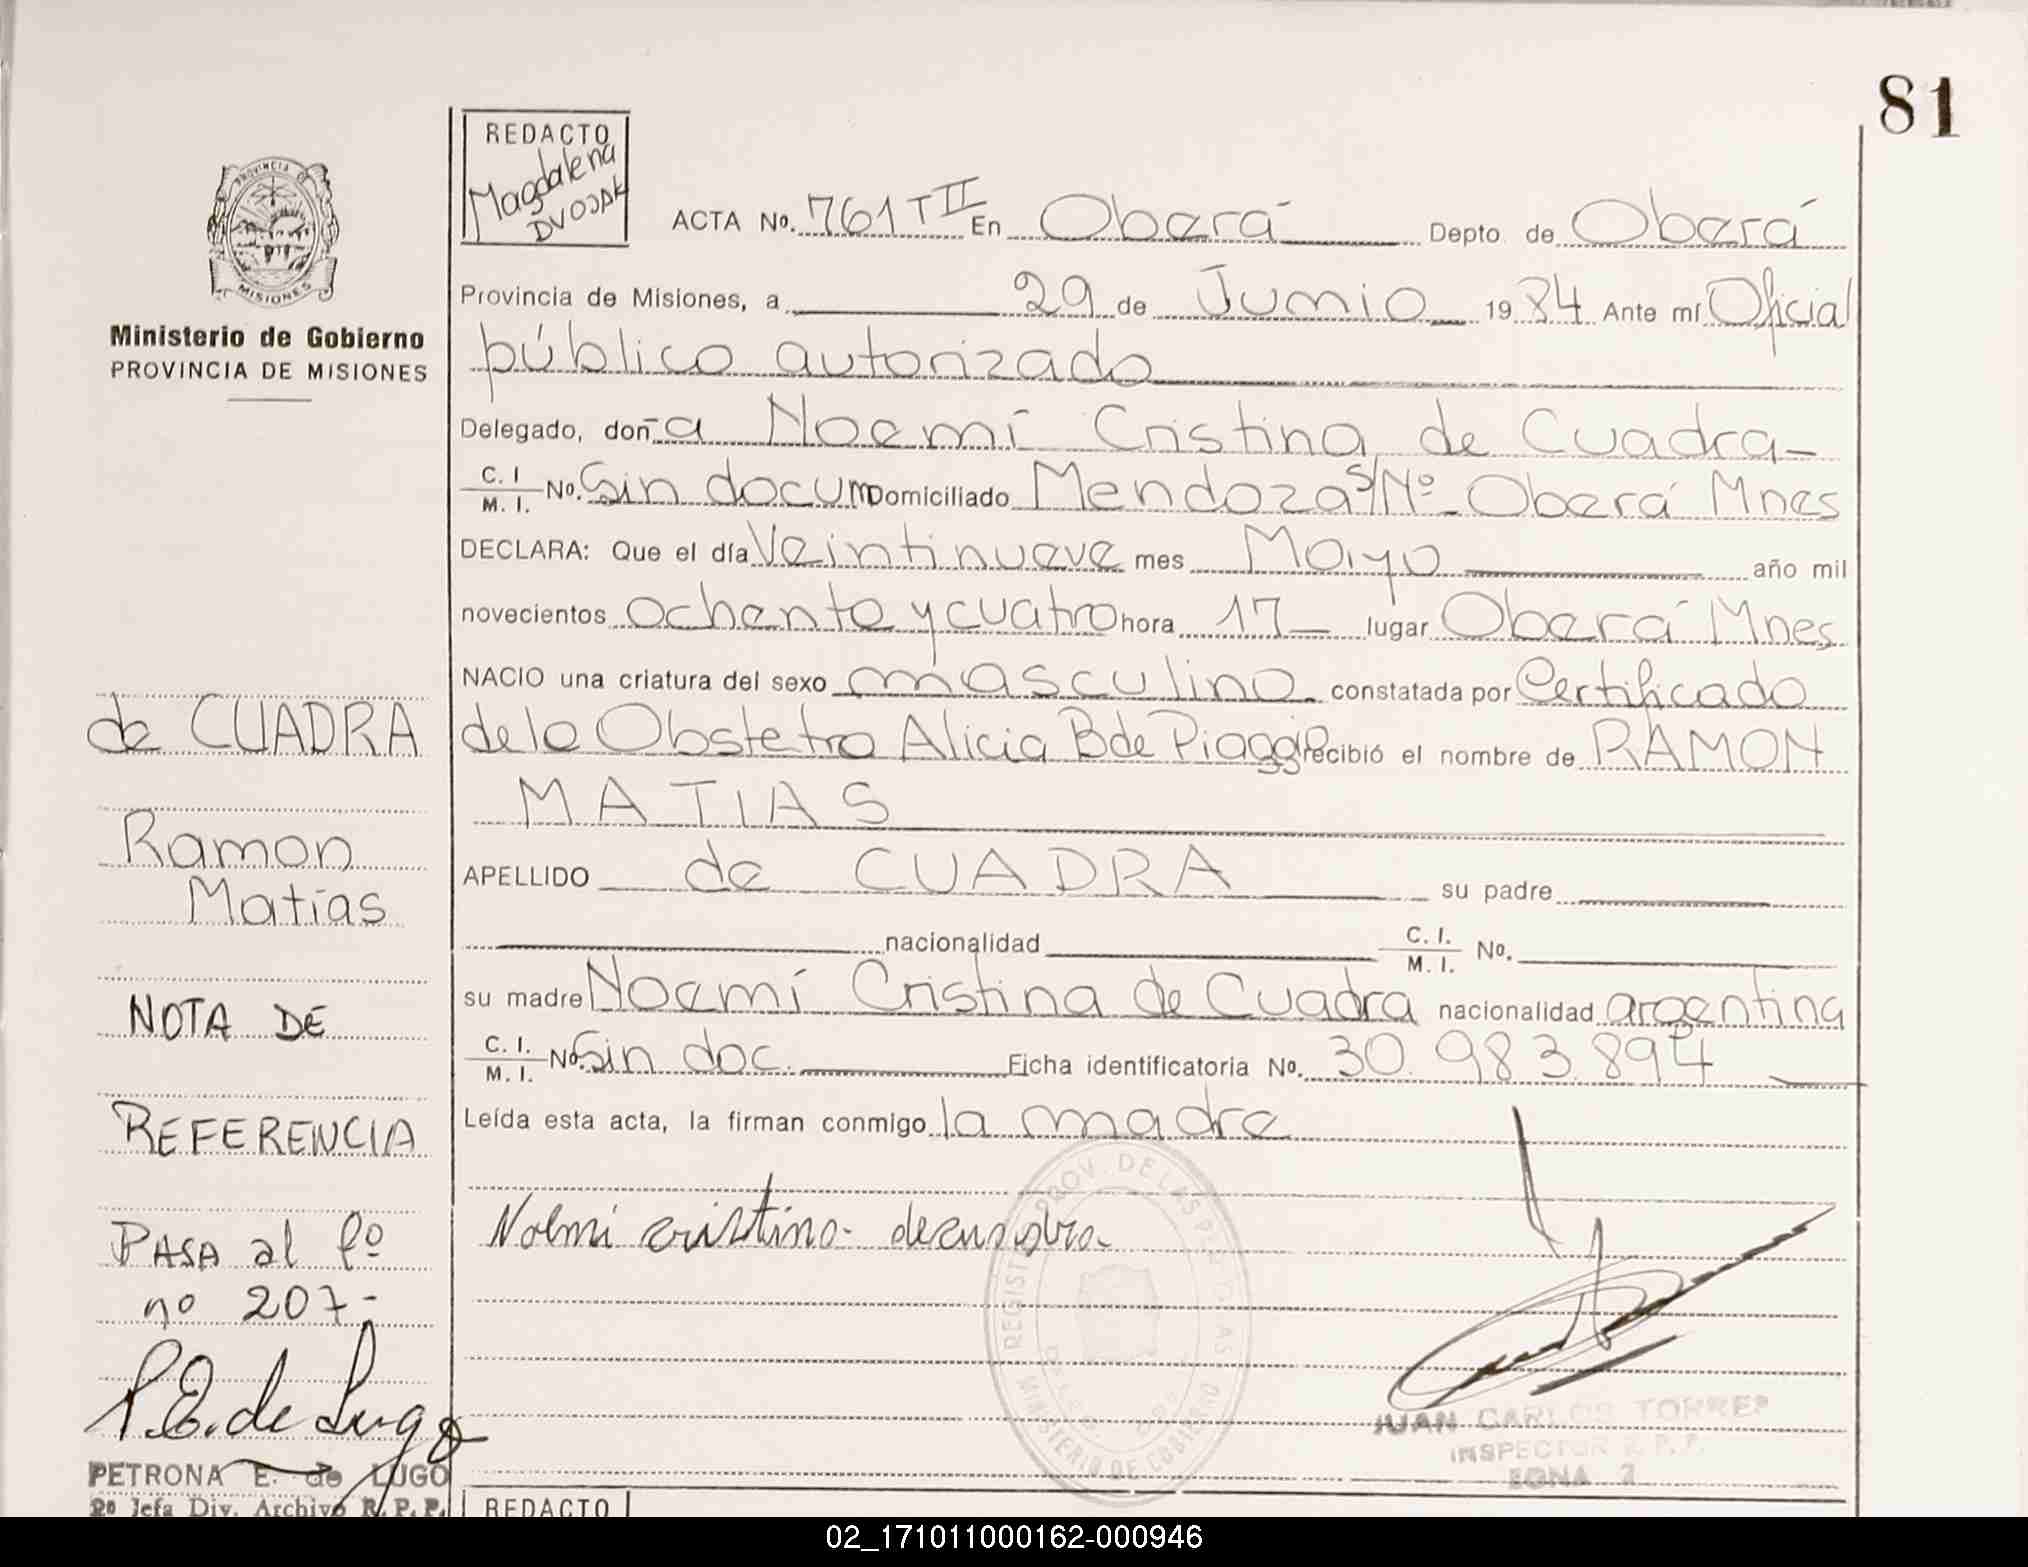 81
REDACTO
Magdalena
DVOJAK
PROVINCIA DE
MISIONES
Ministerio de Gobierno
PROVINCIA DE MISIONES
ACTA No. 761 T II En Oberá Depto de Oberá
Provincia de Misiones, a 29 de Junio 1984 Ante mí Oficial
público autorizado
Delegado, doña Noemí Cristina de Cuadra
C. I. / M. I. No. Sin docum Domiciliado Mendoza S/Nº Oberá Mnes
DECLARA: Que el día Veintinueve mes Mayo año mil
novecientos ochenta y cuatro hora 17 lugar Oberá Mnes
NACIO una criatura del sexo masculino constatada por Certificado
de la Obstetra Alicia B de Piaggio recibió el nombre de RAMON
MATIAS
APELLIDO de CUADRA su padre
nacionalidad C. I. / M. I. No.
su madre Noemí Cristina de Cuadra nacionalidad argentina
C. I. / M. I. No. Sin doc. Ficha identificatoria No. 30.983.894
Leída esta acta, la firman conmigo la madre
Noemi cristina decuadra
de CUADRA
Ramon
Matías
NOTA DE
REFERENCIA
PASA al fº
nº 207-
P.E. de Lugo
PETRONA E. de LUGO
2º Jefa Div. Archivo R. P. P.
REGISTRO PROV. DE LAS PERSONAS
MINISTERIO DE GOBIERNO
JUAN CARLOS TORRES
INSPECTOR R. P. P.
ZONA 2
REDACTO
02_171011000162-000946